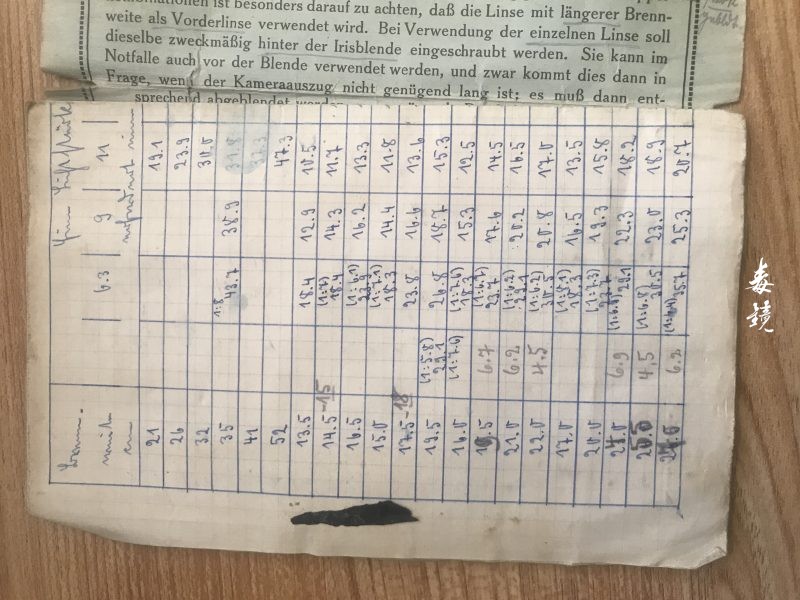 kombinationen ist besonders darauf zu achten, daß die Linse mit längerer Brenn-
weite als Vorderlinse verwendet wird. Bei Verwendung der einzelnen Linse soll
dieselbe zweckmäßig hinter der Irisblende eingeschraubt werden. Sie kann im
Notfalle auch vor der Blende verwendet werden, und zwar kommt dies dann in
Frage, wenn der Kameraauszug nicht genügend lang ist; es muß dann ent-
sprechend abgeblendet werden
6.3 9 11
21 19.1
26 23.9
32 30.0
35 1:8 43.7 38.9 31.8
41
52 47.3
13.5 18.4 12.9 10.5
14.5-15 (1:7) 18.4 14.3 11.7
16.5 (1:6.1) 23.9 16.2 13.3
15.0 (1:7.1) 18.3 14.4 11.8
17.5-18 23.8 16.6 13.6
19.5 (1:5.8) 29.1 26.8 18.7 15.3
16.0 (1:7.6) (1:7.6) 18.3 15.3 12.5
19.5 6.7 (1:6.7) 23.7 17.6 14.5
21.0 6.2 (1:6.2) 29.1 20.2 16.5
22.0 4.5 (1:6.2) 30.5 20.8 17.0
17.0 (1:8.1) 18.3 16.5 13.5
20.0 (1:7.3) 23.7 19.3 15.8
6.9 (1:6.9) 29.1 22.3 18.2
4,5 (1:6.8) 30.5 23.0 18.9
6.2 35.7 25.3 20.7
毒鏡